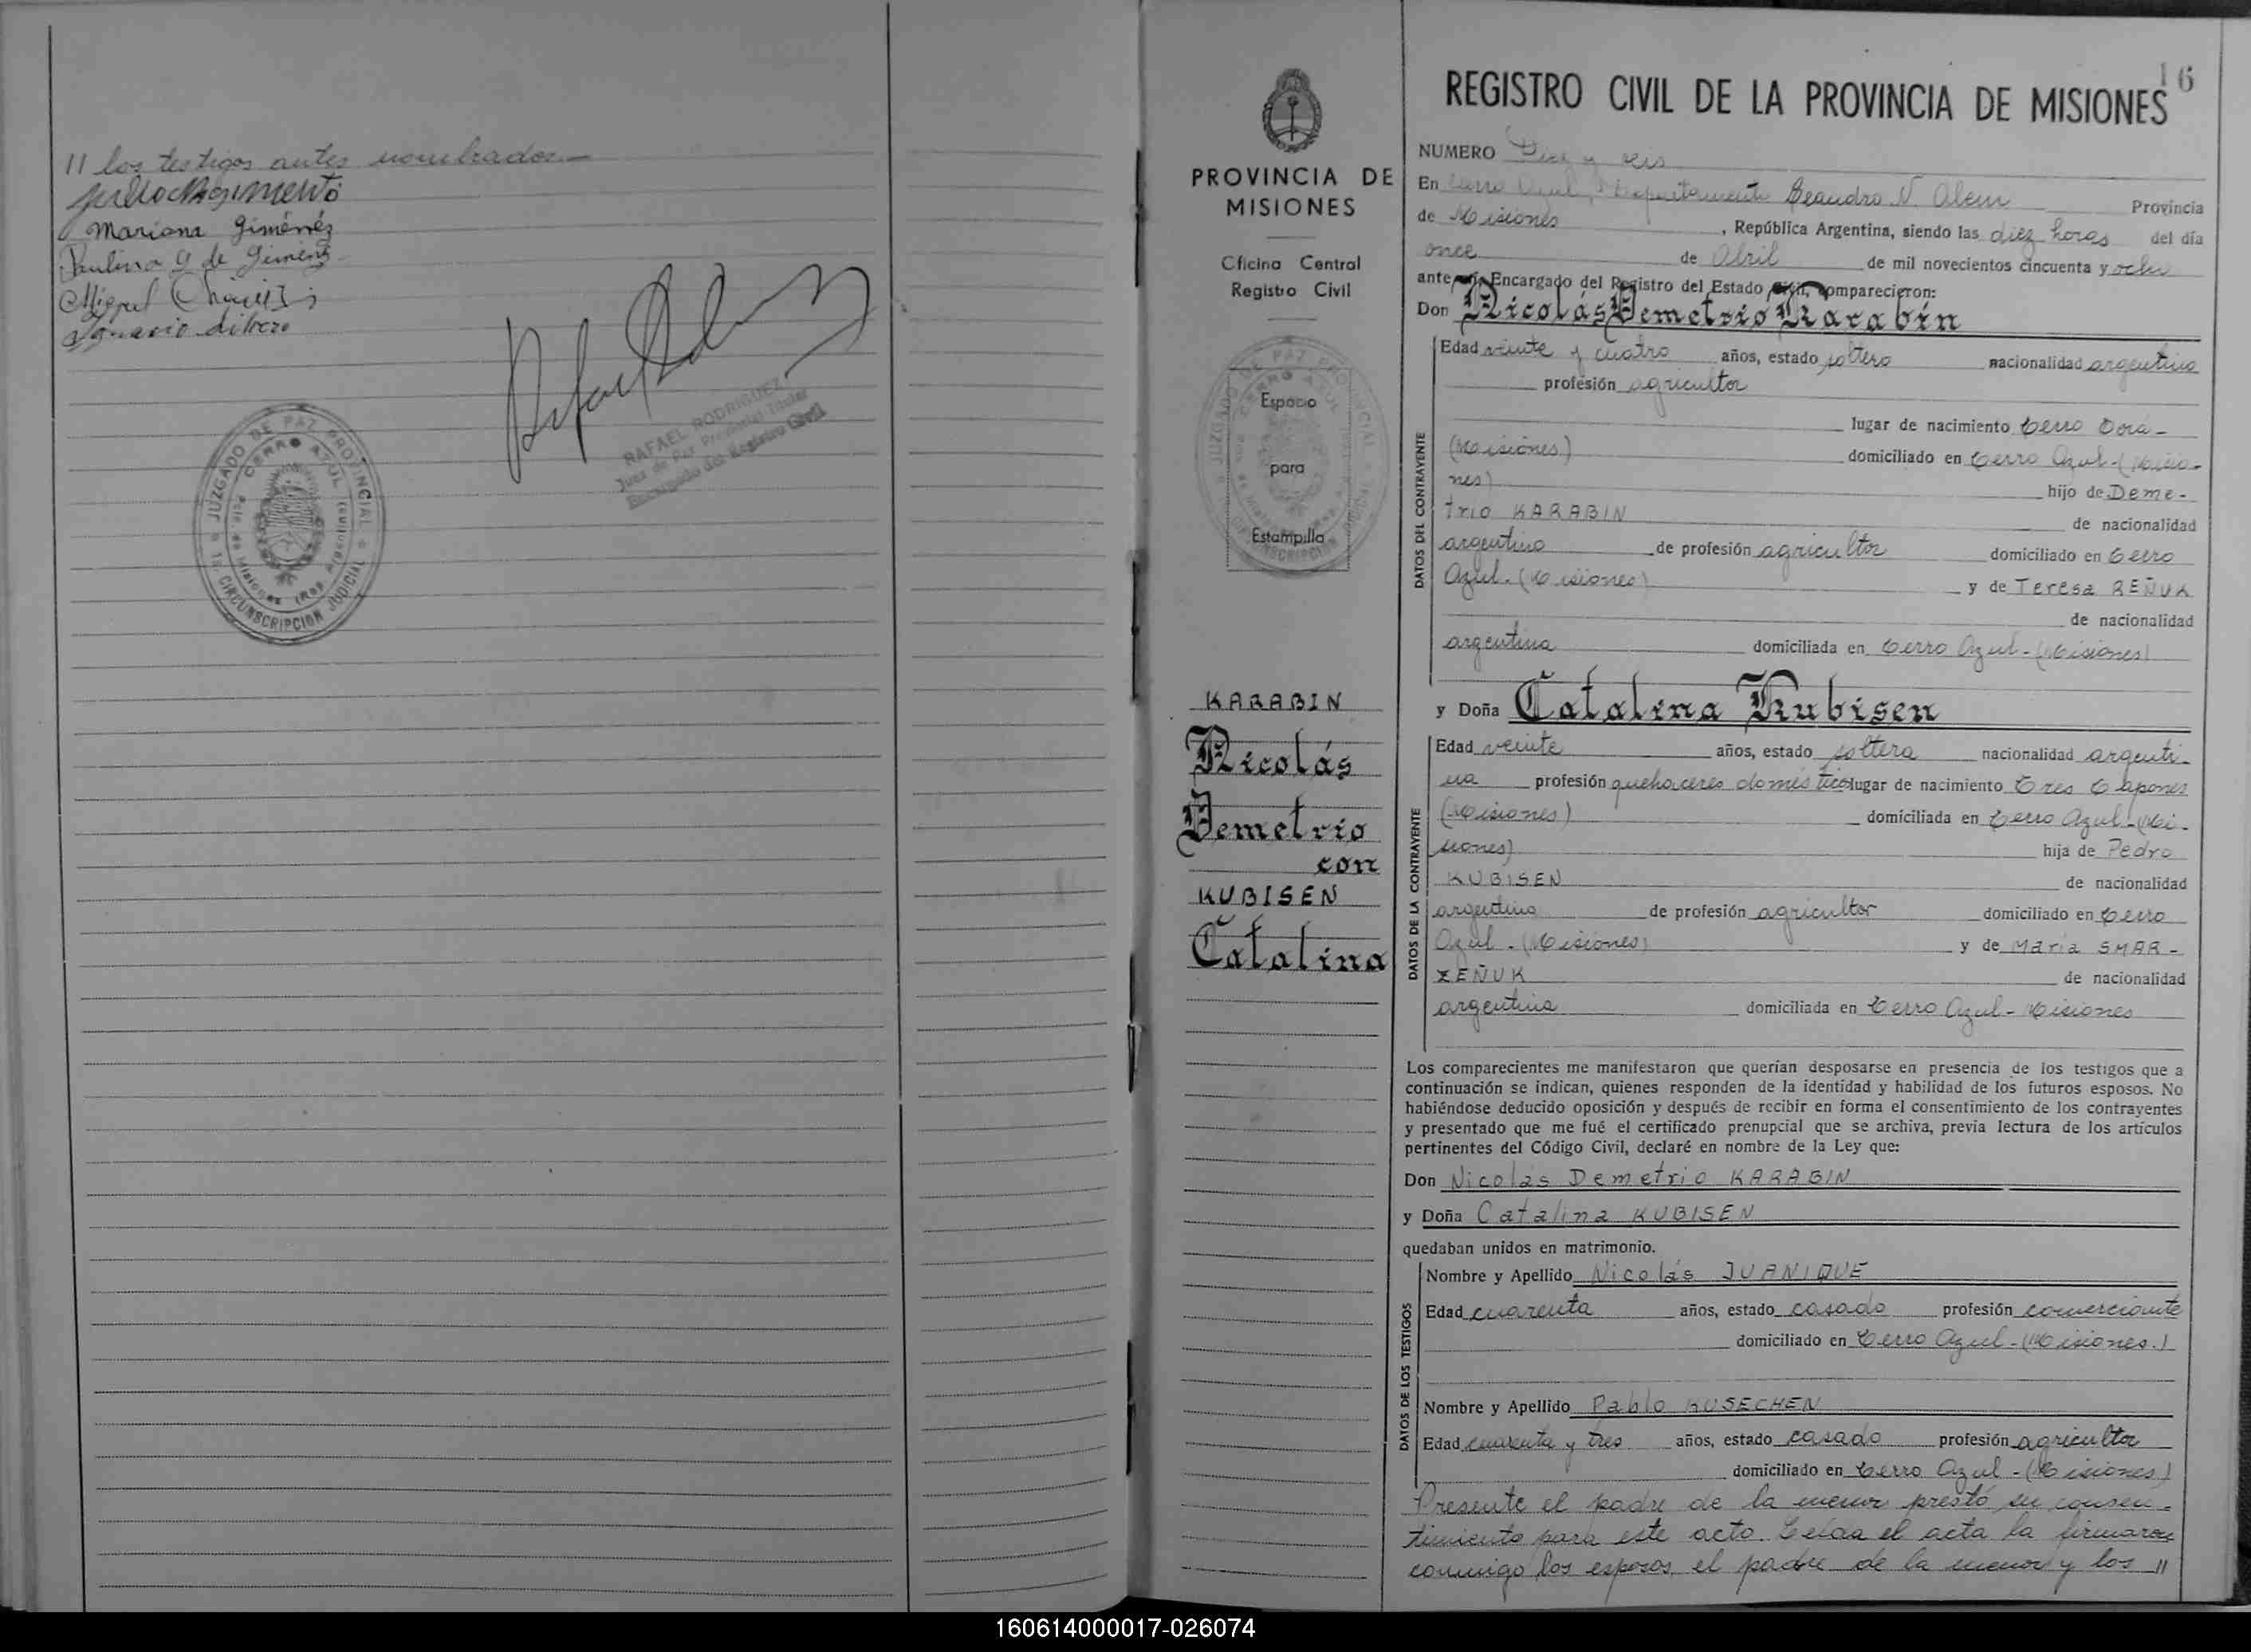 // los testigos antes nombrados.—
Mariana Giménez
Paulina G de Gimenez
Miguel
Ignacio
RAFAEL RODRIGUEZ
Juez de Paz Provincial Titular
Encargado del Registro Civil
JUZGADO DE PAZ PROVINCIAL
CERRO AZUL
Pcia. de Misiones (Rep. Argentina)
1a. CIRCUNSCRIPCION JUDICIAL
PROVINCIA DE
MISIONES
Oficina Central
Registro Civil
Espacio
para
Estampilla
KARABIN
Nicolás
Demetrio
con
KUBISEN
Catalina
16
REGISTRO CIVIL DE LA PROVINCIA DE MISIONES
NUMERO Diez y seis
En Cerro Azul, Departamento Leandro N. Alem Provincia
de Misiones, República Argentina, siendo las diez horas del día
once de Abril de mil novecientos cincuenta y ocho
ante mi, Encargado del Registro del Estado Civil, comparecieron:
Don Nicolás Demetrio Karabín
DATOS DEL CONTRAYENTE
Edad veinte y cuatro años, estado soltero nacionalidad argentina
profesión agricultor
lugar de nacimiento Cerro Corá-
(Misiones) domiciliado en Cerro Azul-(Misio-
nes) hijo de Deme-
trio KARABIN de nacionalidad
argentino de profesión agricultor domiciliado en Cerro
Azul.(Misiones) y de Teresa REÑUK
de nacionalidad
argentina domiciliada en Cerro Azul-(Misiones)
y Doña Catalina Kubisen
DATOS DE LA CONTRAYENTE
Edad veinte años, estado soltera nacionalidad argenti-
na profesión quehaceres domésticos lugar de nacimiento Tres Capones
(Misiones) domiciliada en Cerro Azul-(Mi-
siones) hija de Pedro
KUBISEN de nacionalidad
argentino de profesión agricultor domiciliado en Cerro
Azul.-(Misiones) y de María SMAR-
ZEÑUK de nacionalidad
argentina domiciliada en Cerro Azul-Misiones
Los comparecientes me manifestaron que querían desposarse en presencia de los testigos que a
continuación se indican, quienes responden de la identidad y habilidad de los futuros esposos. No
habiéndose deducido oposición y después de recibir en forma el consentimiento de los contrayentes
y presentado que me fué el certificado prenupcial que se archiva, previa lectura de los artículos
pertinentes del Código Civil, declaré en nombre de la Ley que:
Don Nicolás Demetrio KARABIN
y Doña Catalina KUBISEN
quedaban unidos en matrimonio.
DATOS DE LOS TESTIGOS
Nombre y Apellido Nicolás JUANIQUE
Edad cuarenta años, estado casado profesión comerciante
domiciliado en Cerro Azul-(Misiones.)
Nombre y Apellido Pablo KUSECHEN
Edad cuarenta y tres años, estado casado profesión agricultor
domiciliado en Cerro Azul-(Misiones)
Presente el padre de la menor prestó su consen-
timiento para este acto. Leída el acta la firmaron
conmigo los esposos, el padre de la menor y los //
160614000017-026074